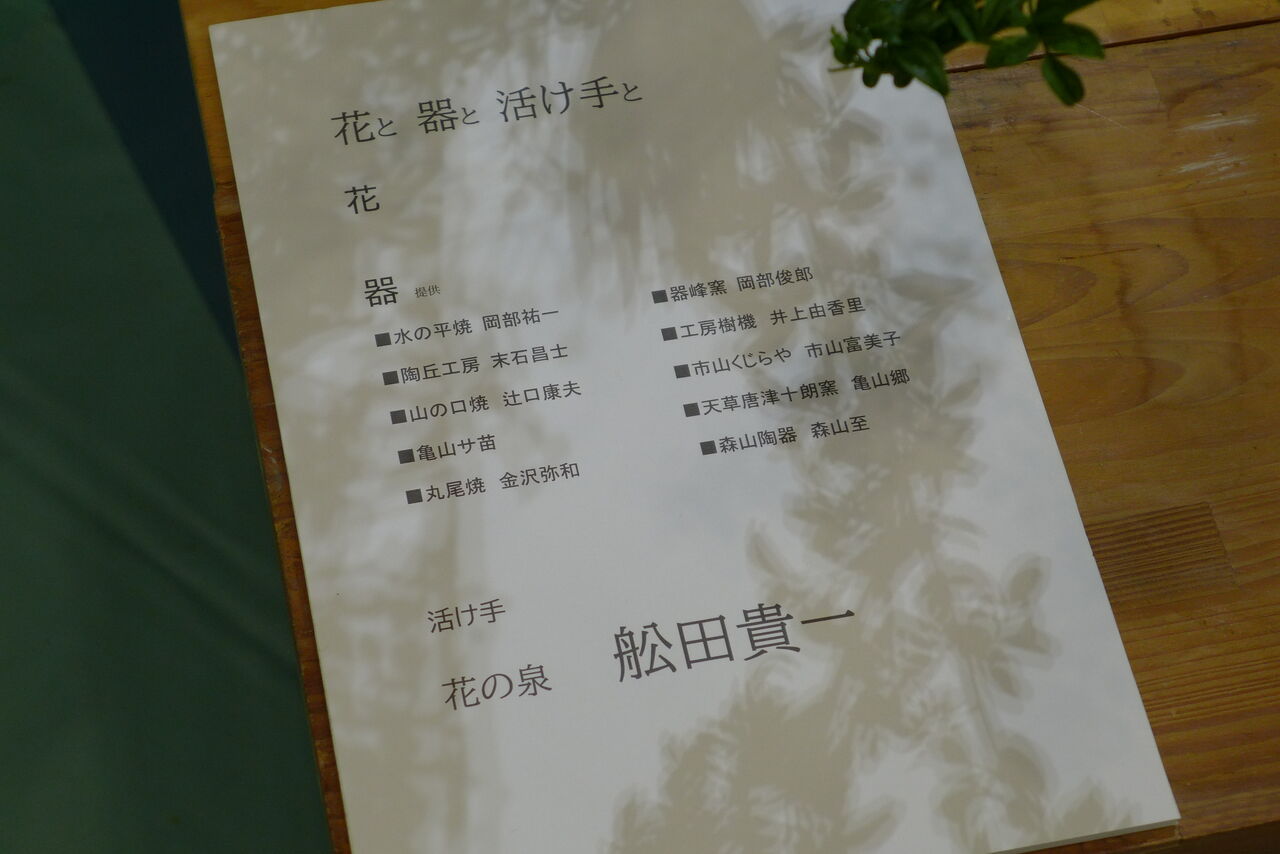 花と 器と 活け手と
花
器 提供
■水の平焼 岡部祐一
■陶丘工房 末石昌士
■山の口焼 辻口康夫
■亀山サ苗
■丸尾焼 金沢弥和
■器峰窯 岡部俊郎
■工房樹機 井上由香里
■市山くじらや 市山富美子
■天草唐津十朗窯 亀山郷
■森山陶器 森山至
活け手
花の泉 舩田貴一